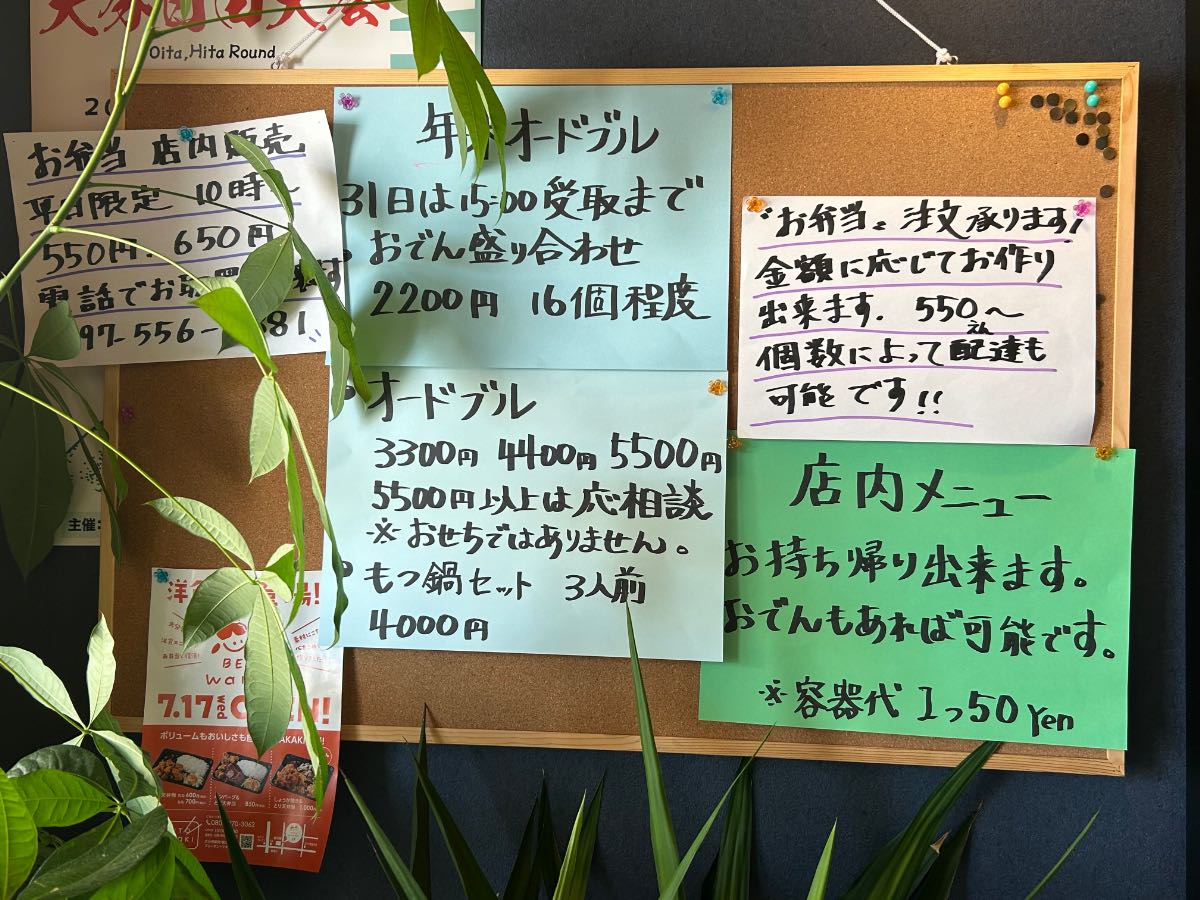 Oita, Hita Round
お弁当 店内販売
平日限定 10時〜
550円、650円
電話でお
97-556-
年 オードブル
31日は15:00受取まで
・おでん盛り合わせ
2200円 16個程度
・オードブル
3300円 4400円 5500円
5500円以上は応相談
※おせちではありません。
・もつ鍋セット 3人前
4000円
"お弁当" 注文承ります!
金額に応じてお作り
出来ます. 550〜
えん
個数によって配達も
可能です!!
店内メニュー
お持ち帰り出来ます。
おでんもあれば可能です。
※容器代 1つ50 Yen
主催:
7.17 wed
ボリュームもおいしさも